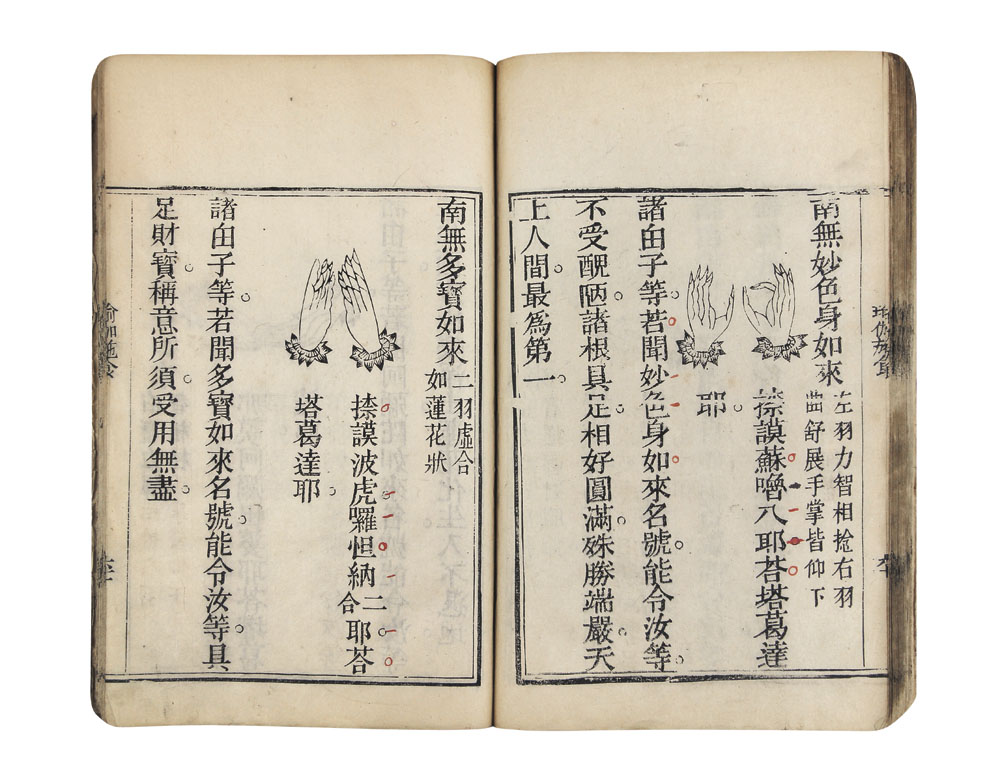 南無妙色身如來
左羽力智相捻右羽
曲舒展手掌皆仰下
捺謨蘇嚕八耶荅塔葛達
耶
諸甶子等若聞妙色身如來名號能令汝等
不受醜陋諸根具足相好圓滿殊勝端嚴天
上人間最爲第一
南無多寶如來
二羽虛合
如蓮花狀
捺謨波虎囉怛納二合耶荅
塔葛達耶
諸甶子等若聞多寶如來名號能令汝等具
足財寶稱意所須受用無盡
瑜伽施食